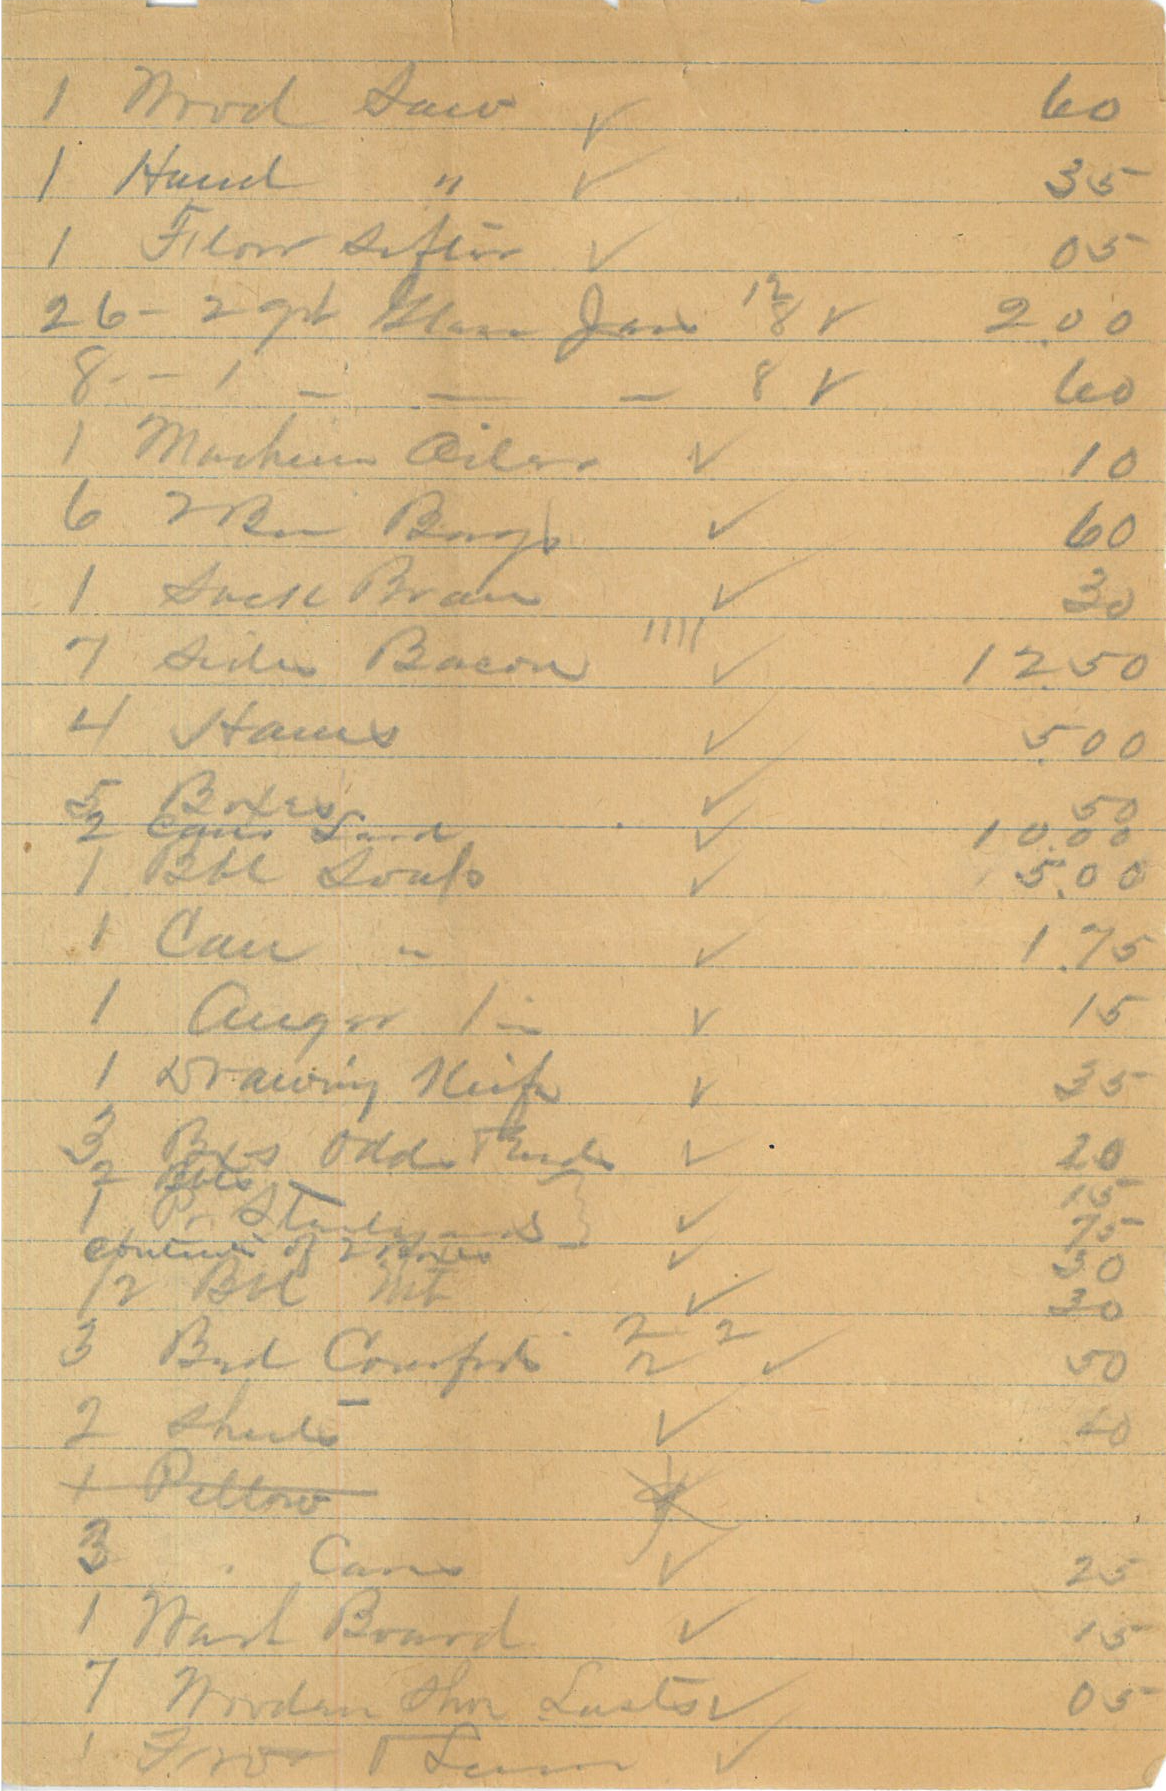 1 Wood Saw ✓ 60
1 Hand " ✓ 35
1 Flour Sifter ✓ 05
26 - 2 qrt Glass Jars 12 8 ✓ 2.00
8 - - 1 — — — 8 ✓ 60
1 Machine Oiler ✓ 10
6 2 Bu Bags ✓ 60
1 Sack Bran ✓ 30
7 Sides Bacon //// ✓ 12.50
4 Hams ✓ 5.00
5 Boxes ✓ 50
2 Cans Lard ✓ 10.00
1 Bbl Soap ✓ 5.00
1 Can " ✓ 1.75
1 Auger 1 in ✓ 15
1 Drawing Knife ✓ 35
3 Bxs Odds & Ends ✓ 20
2 Bbls 15
1 Pr } ✓ 75
contents of 2 Boxes ✓ 30
1/2 Bbl ✓ 30
3 Bed Comforts 2 2 2 ✓ 50
2 Sheets ✓ 40
1 Pillow
3 " Cases ✓ 25
1 Wash Board ✓ 15
7 Wooden Shoe Lasts ✓ 05
1 ✓